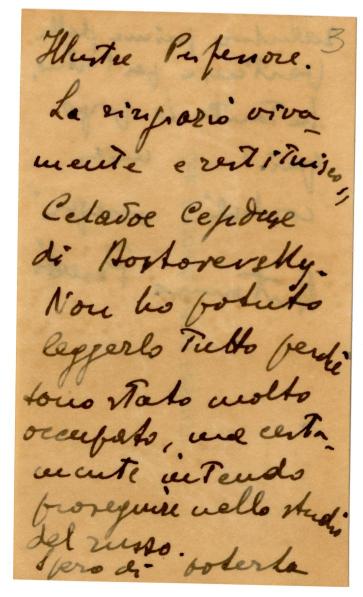 3
Illustre Professore.
La ringrazio viva-
mente e restituisco "
Слабое Сердце
di Dostoevsky.
Non ho potuto
leggerlo tutto perchè
sono stato molto
occupato, ma certa-
mente intendo
proseguire nello studio
del russo.
Spero di poterla